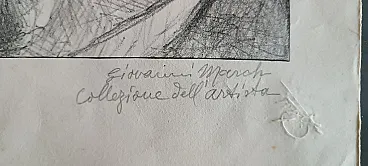 giovanni March
collezione dell'artista